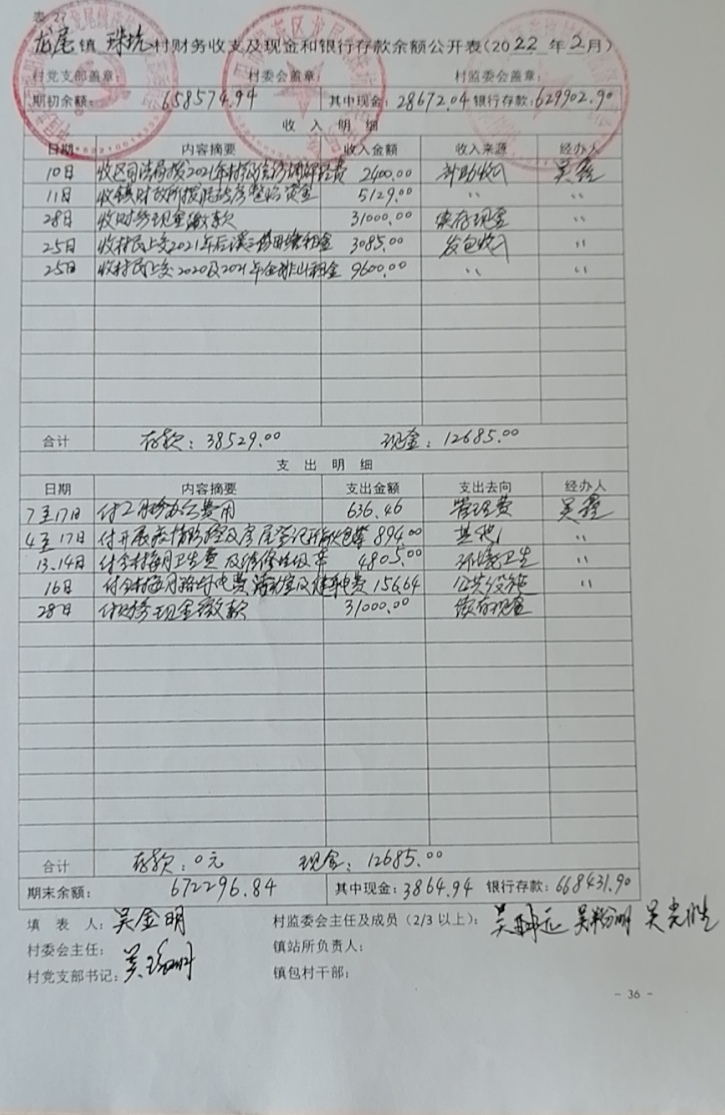 表 27
龙尾镇 珠坑村财务收支及现金和银行存款余额公开表(2022年2月)
村党支部盖章: 村委会盖章: 村监委会盖章:
期初余额: 658574.94 其中现金:28672.04 银行存款:629902.90
收入明细
日期 内容摘要 收入金额 收入来源 经办人
10日 收区司法局拨2021年村级信访调解经费 2400.00 补助收入 吴鑫
11日 收镇财政所拨 整治资金 5129.00 〃 〃
28日 收财务现金缴款 31000.00 续存现金 〃
25日 收村民上交2021年后溪 租金 3085.00 发包收入 〃
25日 收村民上交2020及2021年 山租金 9600.00 〃 〃
合计 存款:38529.00 现金:12685.00
支出明细
日期 内容摘要 支出金额 支出去向 经办人
7至17日 付 办公费用 636.46 管理费 吴鑫
4至17日 付开展疫情防控及房屋登记 894.00 其他 〃
13.14日 付全村每月卫生费及 4805.00 环境卫生 〃
16日 付全村每月路灯电费 电费 156.64 公共设施 〃
28日 付财务现金缴款 31000.00 续存现金
合计 存款:0元 现金:12685.00
期末余额: 672296.84 其中现金:3864.94 银行存款:668431.90
填表人:吴金明 村监委会主任及成员(2/3以上):
村委会主任: 镇站所负责人:
村党支部书记: 镇包村干部:
- 36 -